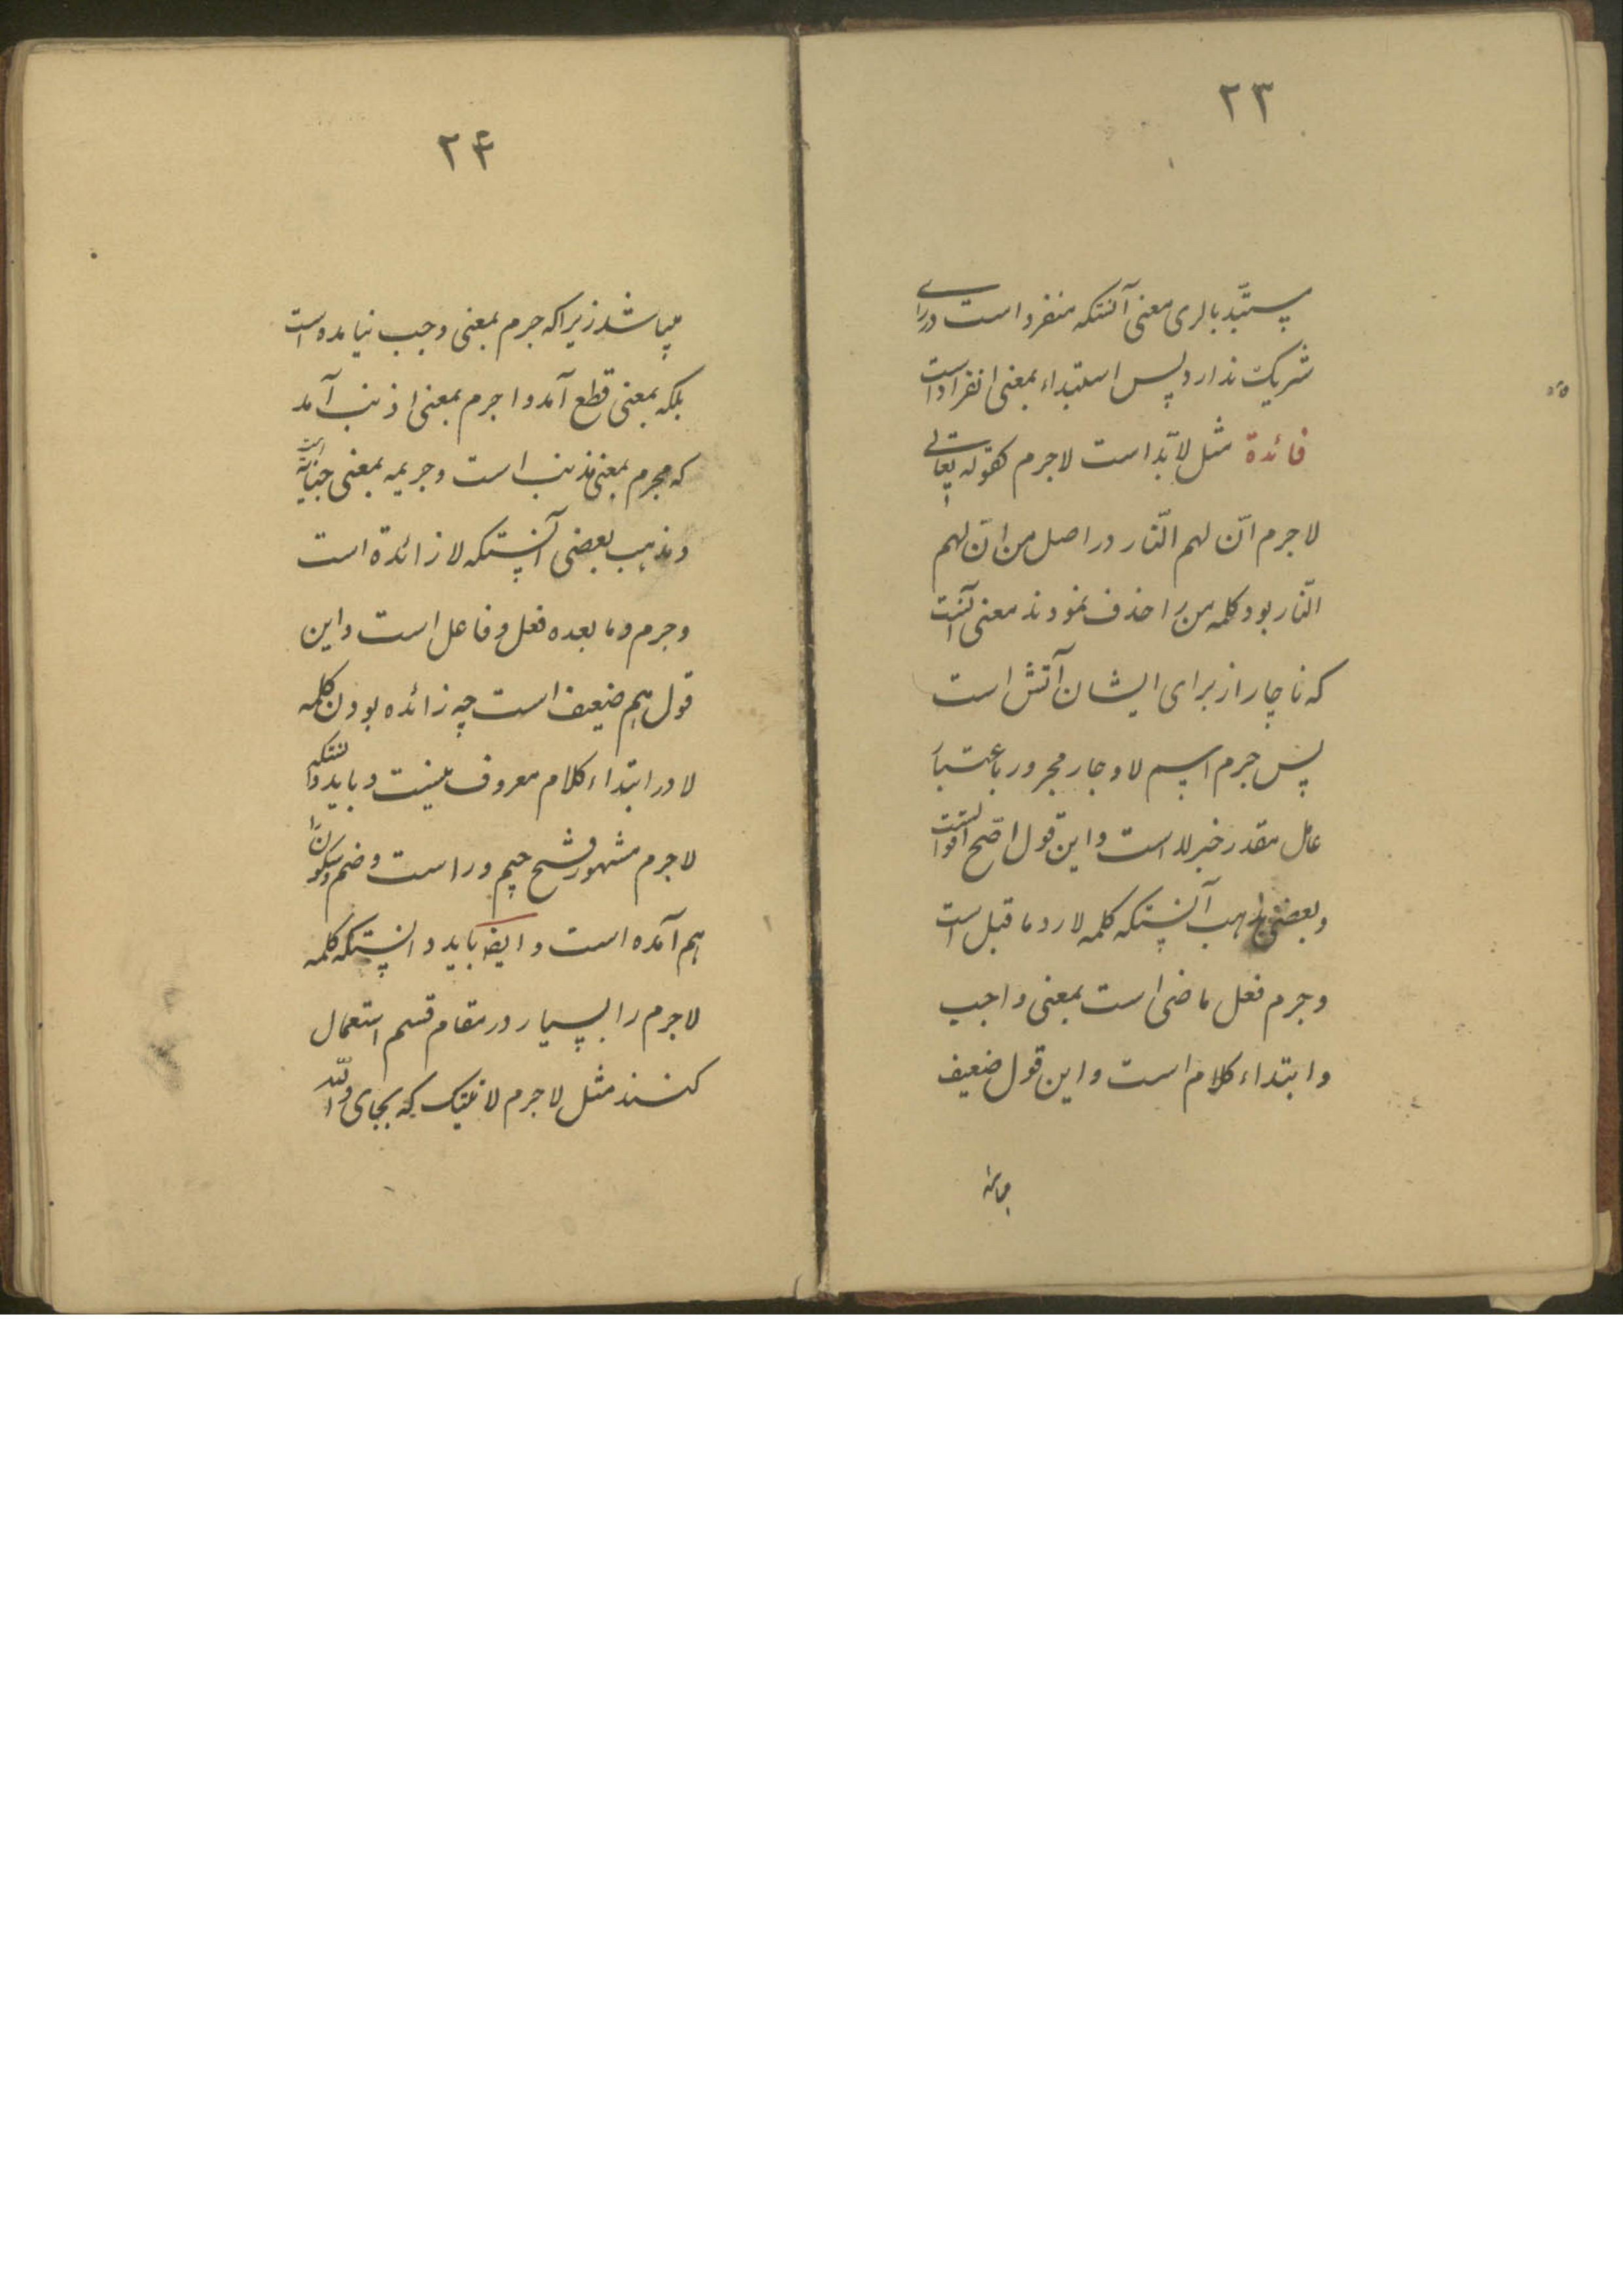 ۲۳
مستبّد بالری معنی آنستکه منفرد است در رای
شریک ندارد پس استبداء بمعنی انفراد است
فائدة مثل لابدّ است لاجرم کقوله تعالی
لاجرم انّ لهم النّار در اصل من انّ لهم
النّار بود کلمه من را حذف نمودند معنی آنست
که ناچار از برای ایشان آتش است
پس جرم اسم لا و جار مجرور باعتبار
عامل مقدر خبر لا است و این قول اصّح اقوالست
و بعضی مذهب آنستکه کلمه لا رد ما قبل است
و جرم فعل ماضی است بمعنی واجب
و ابتداء کلام است و این قول ضعیف
میباشد
۲۴
میباشد زیرا که جرم بمعنی وجب نیامده است
بلکه بمعنی قطع آمد و اجرم بمعنی اذنب آمد
که مجرم بمعنی مذنب است و جریمه بمعنی جنایة است
و مذهب بعضی آنستکه لا زائدة است
و جرم و ما بعده فعل و فاعل است و این
قول هم ضعیف است چه زائده بودن کلمه
لا در ابتداء کلام معروف نیست و باید دانستکه
لاجرم مشهور فتح جیم و را است و ضم و سکون را
هم آمده است و ایضا باید دانستکه کلمه
لاجرم را بسیار در مقام قسم استعمال
کنند مثل لاجرم لاتیتک که بجای والله